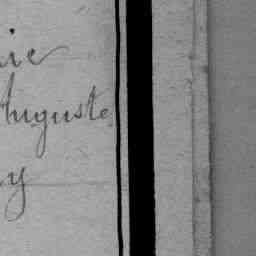 ie
Auguste
y